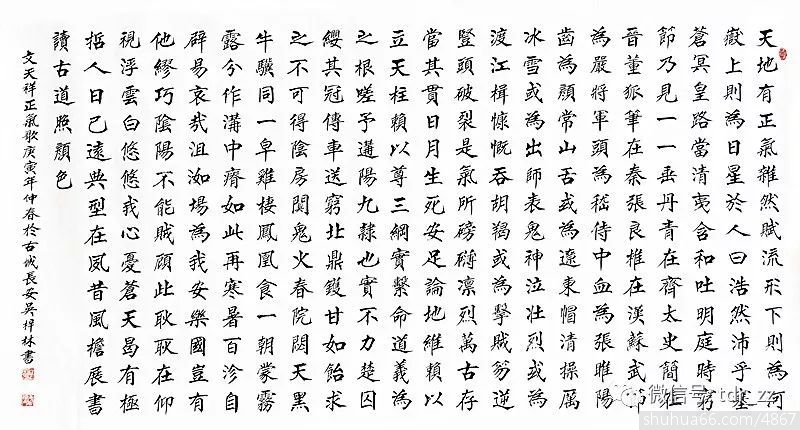 天地有正氣雜然賦流形下則為河
嶽上則為日星於人曰浩然沛乎塞
蒼冥皇路當清夷含和吐明庭時窮
節乃見一一垂丹青在齊太史簡在
晉董狐筆在秦張良椎在漢蘇武節
為嚴將軍頭為嵇侍中血為張睢陽
齒為顏常山舌或為遼東帽清操厲
冰雪或為出師表鬼神泣壯烈或為
渡江楫慷慨吞胡羯或為擊賊笏逆
豎頭破裂是氣所磅礴凛烈萬古存
當其貫日月生死安足論地維賴以
立天柱賴以尊三綱實繫命道義為
之根嗟予遘陽九隸也實不力楚囚
纓其冠傳車送窮北鼎鑊甘如飴求
之不可得陰房闃鬼火春院閟天黑
牛驥同一皁雞棲鳳凰食一朝蒙霧
露分作溝中瘠如此再寒暑百沴自
辟易哀哉沮洳場為我安樂國豈有
他繆巧陰陽不能賊顧此耿耿在仰
視浮雲白悠悠我心憂蒼天曷有極
哲人日已遠典型在夙昔風檐展書
讀古道照顏色
文天祥正氣歌庚寅年仲春於古城長安吳梓林書
微信号: tdr_zz
shuhua66.com/4867